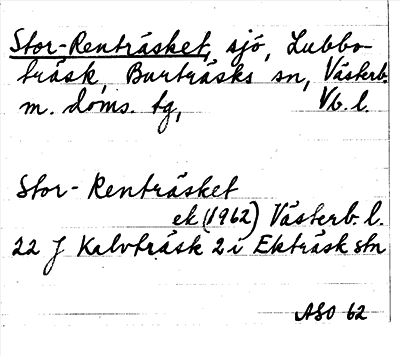 Stor-Renträsket, sjö, Lubbo-
träsk, Burträsks sn, Västerb.
m. doms. tg, Vb. l.
Stor-Renträsket
ek (1962) Västerb. l.
22 J Kalvträsk 2 i Ekträsk stn
ASO 62